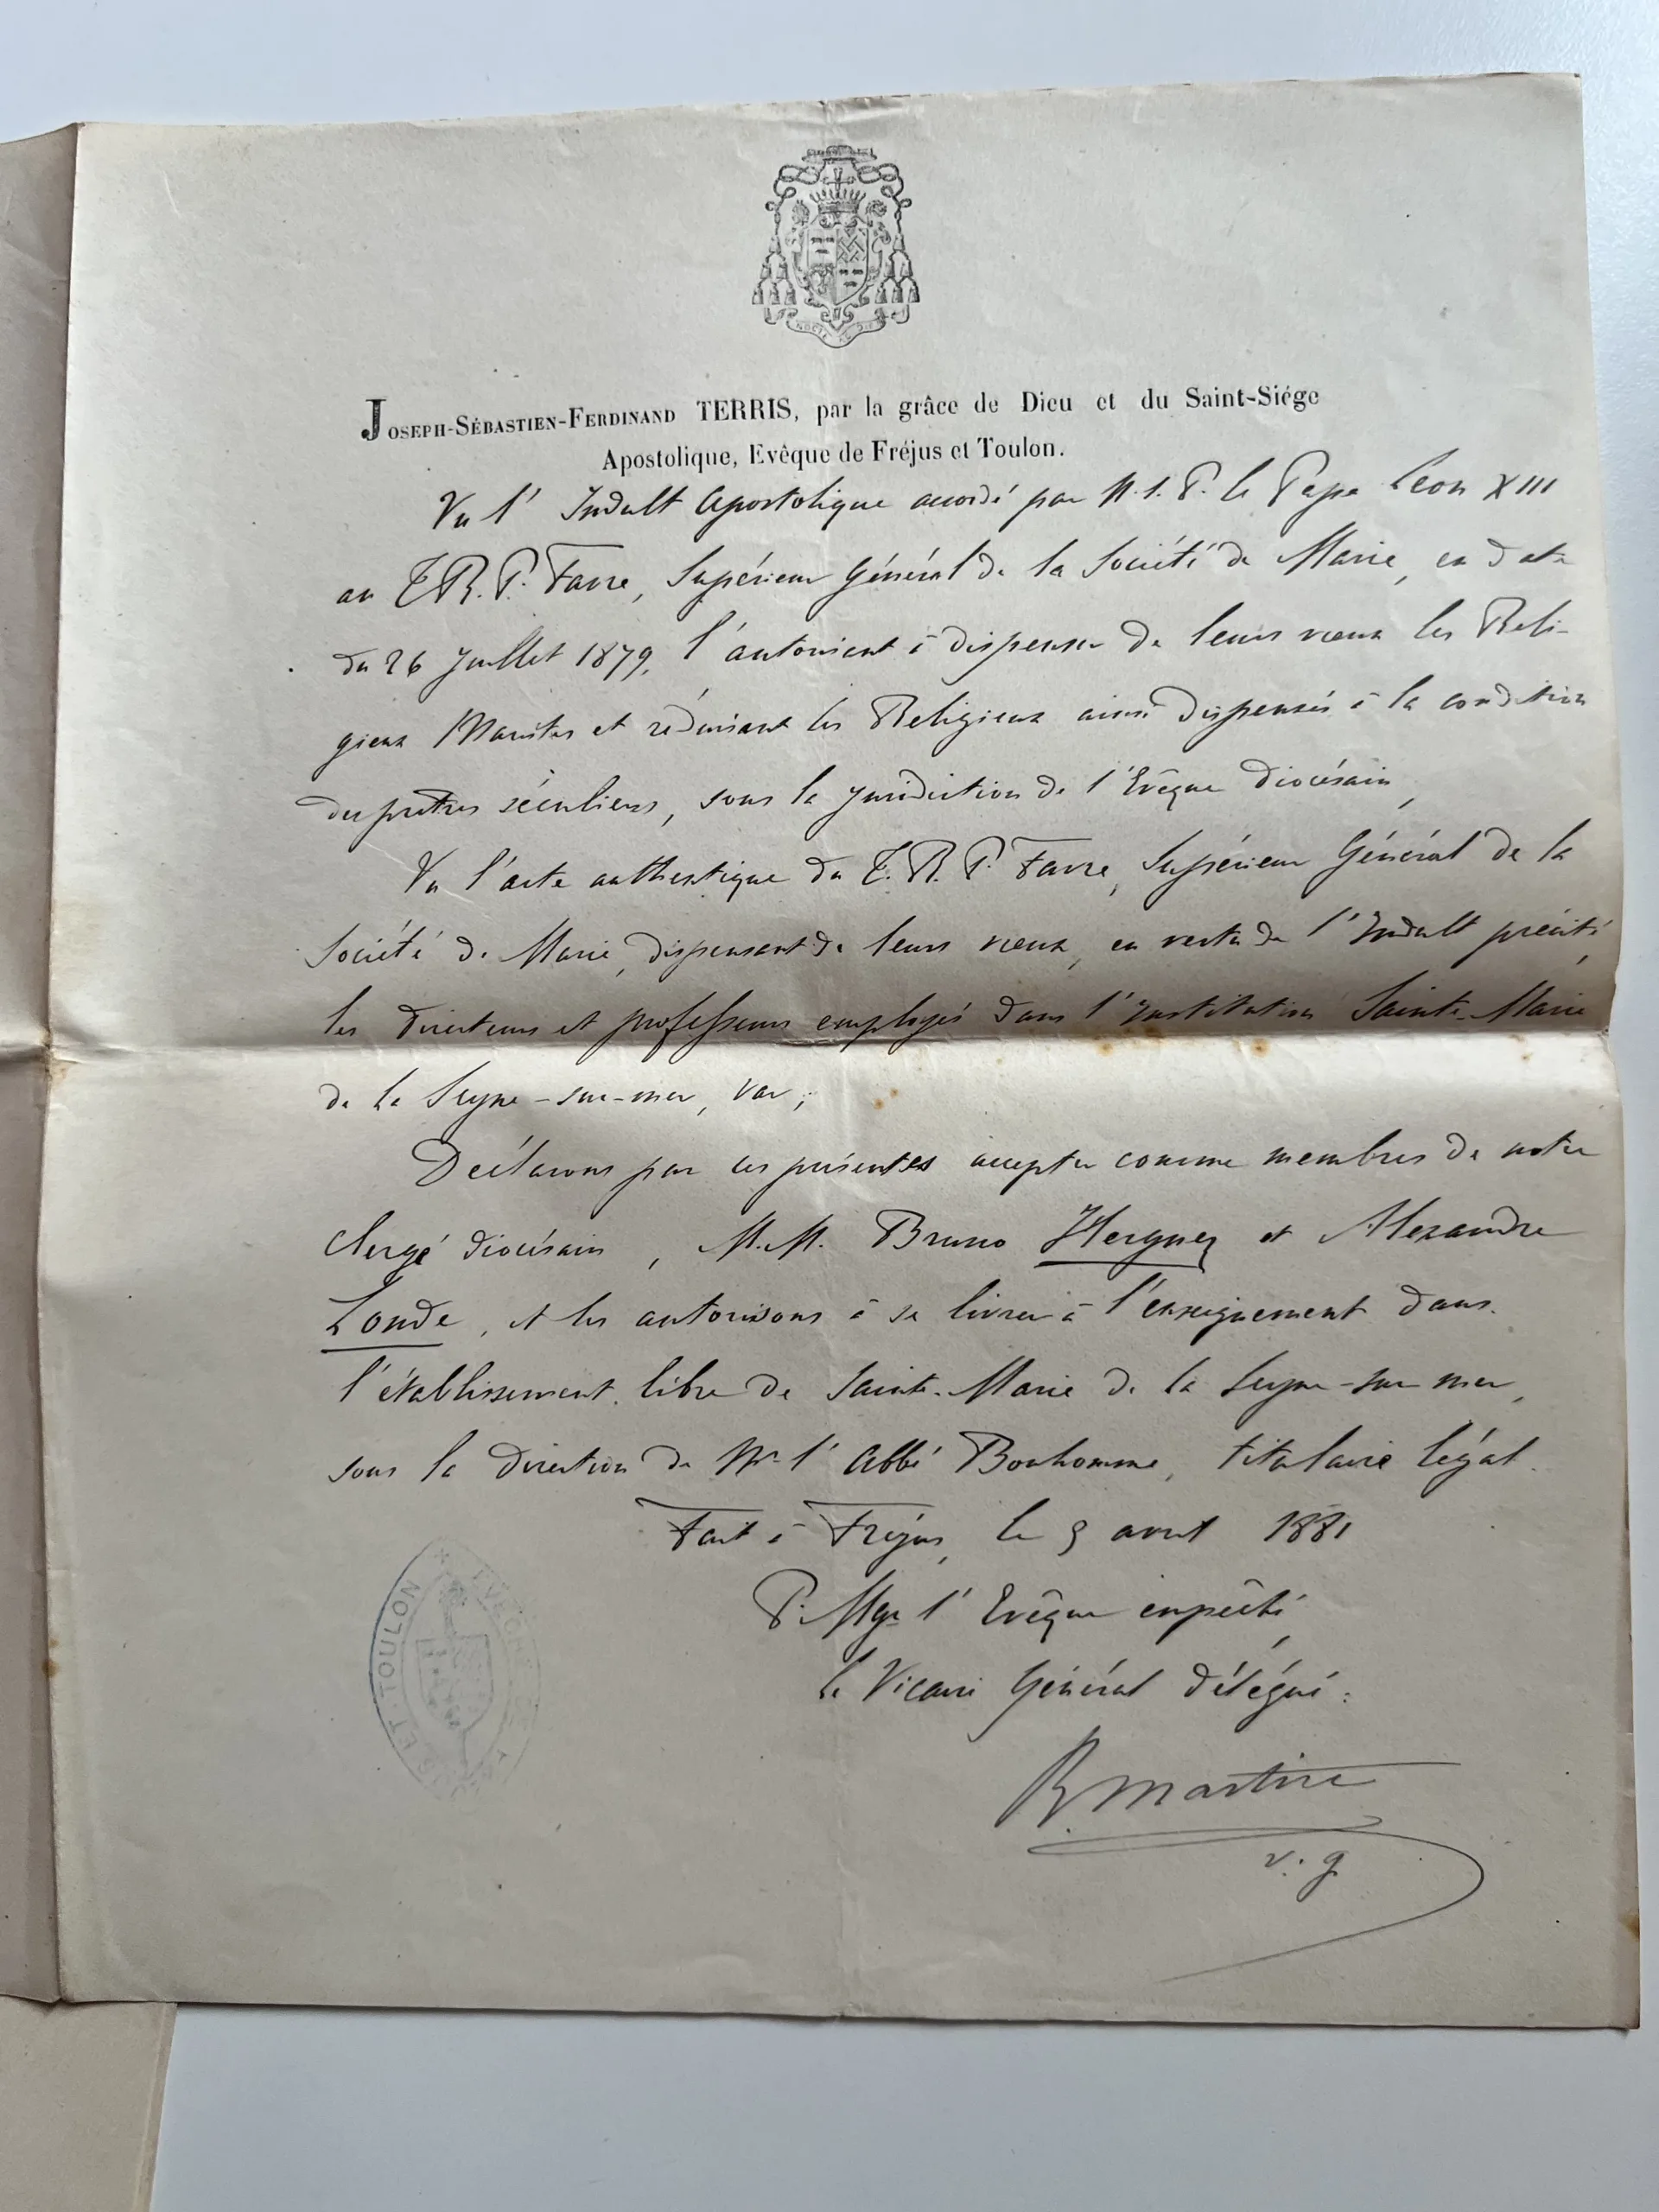 JOSEPH-SÉBASTIEN-FERDINAND TERRIS, par la grâce de Dieu et du Saint-Siége
Apostolique, Evêque de Fréjus et Toulon.
Vu l' Indult Apostolique accordé par N. S. P. le Pape Léon XIII
au T. R. P. Favre, Supérieur Général de la Société de Marie, en date
du 26 Juillet 1879, l'autorisant à dispenser de leurs vœux les Reli-
gieux Maristes et réduisant les Religieux ainsi dispensés à la condition
des prêtres séculiers, sous la juridiction de l'Evêque Diocésain,
Vu l'acte authentique du T. R. P. Favre, Supérieur Général de la
Société de Marie, dispensant de leurs vœux, en vertu de l'Indult précité,
les directeurs et professeurs employés dans l'Institution Sainte-Marie
de la Seyne-sur-mer, Var;
Déclarons par ces présentes accepter comme membres de notre
clergé diocésain, M.M. Bruno et Alexandre
Londe, et les autorisons à se livrer à l'enseignement dans
l'établissement libre de Sainte-Marie de la Seyne-sur mer,
sous la direction de Mr l'Abbé Bonhomme, titulaire légal.
Fait à Fréjus, le avril 1881
P. Mgr l'Evêque empêché,
le Vicaire Général délégué:
martin
v. g.
ET TOULON